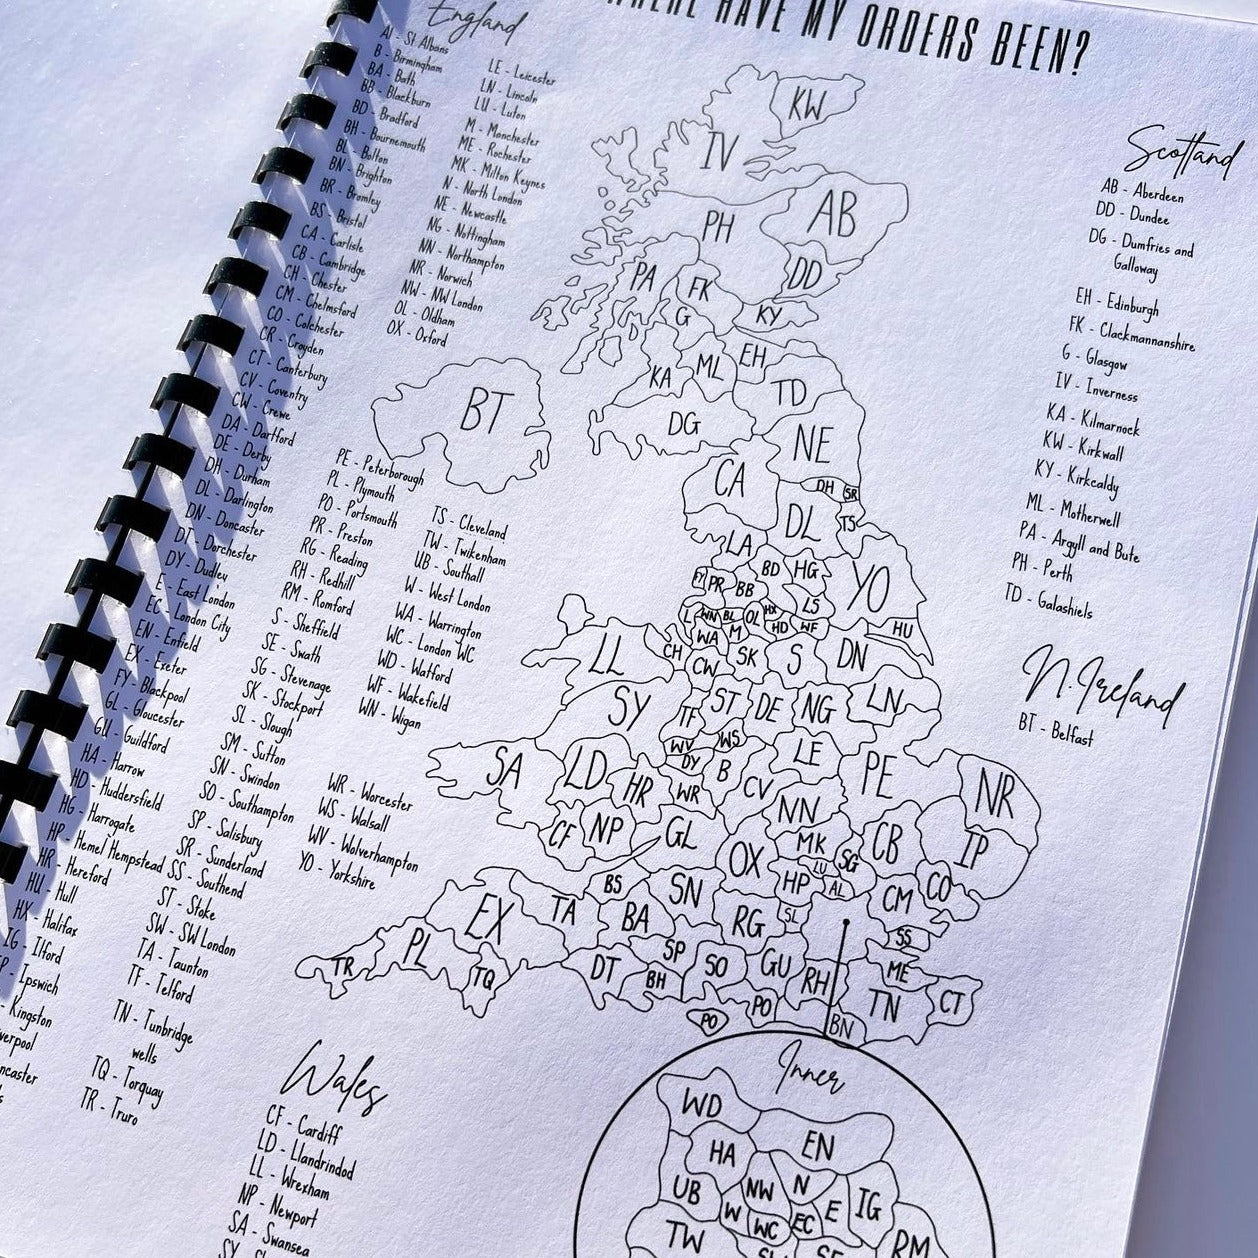 WHERE HAVE MY ORDERS BEEN?
England
Al - St Albans
B - Birmingham
BA - Bath
BB - Blackburn
BD - Bradford
BH - Bournemouth
BL - Bolton
BN - Brighton
BR - Bromley
BS - Bristol
CA - Carlisle
CB - Cambridge
CH - Chester
CM - Chelmsford
CO - Colchester
CR - Croyden
CT - Canterbury
CV - Coventry
CW - Crewe
DA - Dartford
DE - Derby
DH - Durham
DL - Darlington
DN - Doncaster
DT - Dorchester
DY - Dudley
E - East London
EC - London City
EN - Enfield
EX - Exeter
FY - Blackpool
GL - Gloucester
GU - Guildford
HA - Harrow
HD - Huddersfield
HG - Harrogate
HP - Hemel Hempstead
HR - Hereford
HU - Hull
HX - Halifax
IG - Ilford
IP - Ipswich
- Kingston
LE - Leicester
LN - Lincoln
LU - Luton
M - Manchester
ME - Rochester
MK - Milton Keynes
N - North London
NE - Newcastle
NG - Nottingham
NN - Northampton
NR - Norwich
NW - NW London
OL - Oldham
OX - Oxford
PE - Peterborough
PL - Plymouth
PO - Portsmouth
PR - Preston
RG - Reading
RH - Redhill
RM - Romford
S - Sheffield
SE - Swath
SG - Stevenage
SK - Stockport
SL - Slough
SM - Sutton
SN - Swindon
SO - Southampton
SP - Salisbury
SR - Sunderland
SS - Southend
ST - Stoke
SW - SW London
TA - Taunton
TF - Telford
TN - Tunbridge
wells
TQ - Torquay
TR - Truro
TS - Cleveland
TW - Twikenham
UB - Southall
W - West London
WA - Warrington
WC - London WC
WD - Watford
WF - Wakefield
WN - Wigan
WR - Worcester
WS - Walsall
WV - Wolverhampton
YO - Yorkshire
Wales
CF - Cardiff
LD - Llandrindod
LL - Wrexham
NP - Newport
SA - Swansea
Scotland
AB - Aberdeen
DD - Dundee
DG - Dumfries and
Galloway
EH - Edinburgh
FK - Clackmannanshire
G - Glasgow
IV - Inverness
KA - Kilmarnock
KW - Kirkwall
KY - Kirkcaldy
ML - Motherwell
PA - Argyll and Bute
PH - Perth
TD - Galashiels
N.Ireland
BT - Belfast
KW
IV
AB
PH
DD
PA
FK
G
KY
EH
ML
KA
TD
BT
DG
NE
CA
DH SR
DL TS
LA
BD HG
YO
FY PR BB
LS
L WN BL OL HX
HD WF HU
WA M
CH
LL CW SK S DN
SY TF ST DE NG LN
WV WS
SA LD HR DY B LE PE NR
WR CV NN
CF NP GL MK CB IP
OX LU SG
HP AL
BS SN CM CO
EX TA BA RG SL
SS
PL SP
TR TQ DT BH SO GU RH ME
TN CT
PO PO BN
Inner
WD
EN
HA
UB NW N
IG
W WC EC E
TW
RM